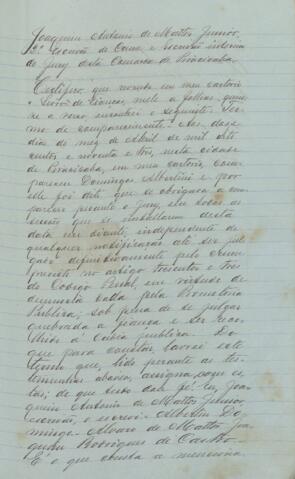 Joaquim Antonio de Mattos Junior,
2º escrivão de Orna, e escrivão interino
do Jury desta Comarca de Piracicaba.
Certifico que revendo em meu cartorio
o livro de fianças, nelle a folhas quin-
ze a verso encontrei o seguinte: Ter-
mo de comparecimento. Aos doze
dias do mez de Abril de mil oito
centos e noventa e tres, nesta cidade
de Piracicaba, em meu cartorio, com-
pareceu Domingos Albertini e por
este foi dito que se obrigava a com-
parecer perante o Jury, em todas as
sessões que se trabalharem desta
data em diante, independente de
qualquer notificação até ser jul-
gado definitivamente pelo crime
previsto no artigo trezentos e tres
do Codigo Penal, em virtude de
denuncia dada pela Promotoria
Publica; sob pena de se julgar
quebrada a fiança e ser reco-
lhido á Cadeia publica. Do
que para constar lavrei este
termo que, lido perante as tes-
temunhas abaixo, assigna com el-
las; do que tudo dou fé. Eu, Joa-
quim Antonio de Mattos Junior,
escrivão, o escrevi. Albertini Do-
mingo. Alvaro de Mattos. Joa-
quim Rodrigues de Castro.
É o que consta a menciona